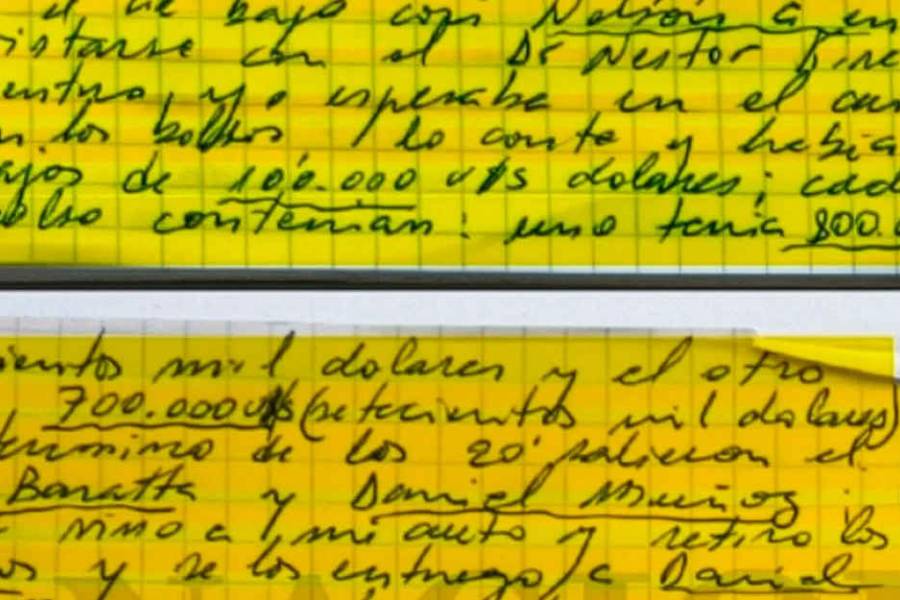 el de bajo con Nelson G en
istarse con el Dr Nestor
entro, yo esperaba en el
los bolsos, lo conte y habia
ajos de 100.000 u$s dolares; cad
olso contenian: uno tenia 800.
ientos mil dolares y el otro
700.000 u$s (setecientos mil dolares)
termino de los 20' salieron el
Baratta y Daniel Muñoz
vino a mi auto y retiro los
os y se los entrego a Daniel